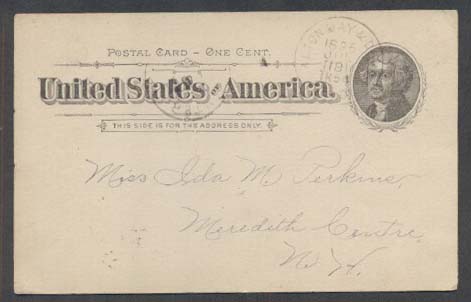 POSTAL CARD – ONE CENT.
United States of America.
THIS SIDE IS FOR THE ADDRESS ONLY.
Miss Ida M. Perkins,
Meredith Centre,
N. H.